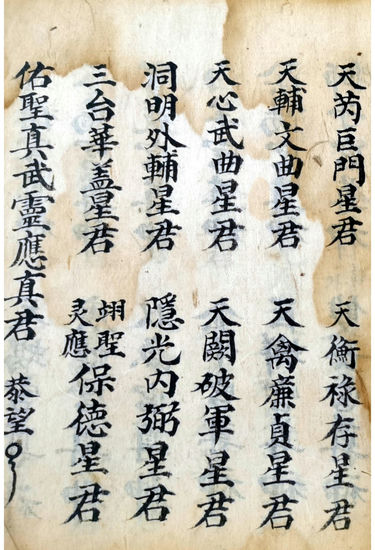 天芮巨門星君 天衝祿存星君
天輔文曲星君 天禽廉貞星君
天心武曲星君 天關破軍星君
洞明外輔星君 隱光内弼星君
三台華盖星君 翊聖灵應保德星君
佑聖真武靈應真君 恭望